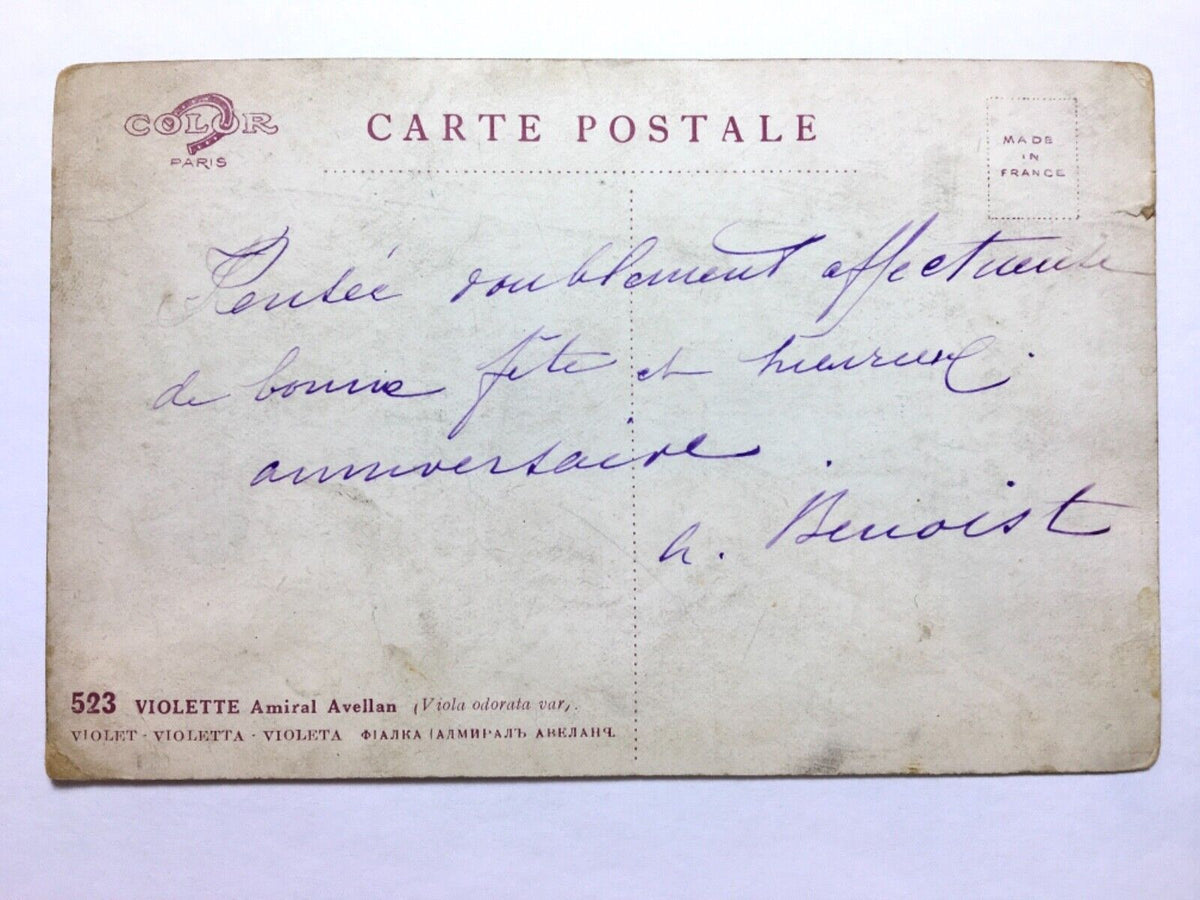 COLOR
PARIS
CARTE POSTALE
MADE
IN
FRANCE
Pensée doublement affectueuse
de bonne fête et heureux
anniversaire.
a. Benoist
523 VIOLETTE Amiral Avellan (Viola odorata var).
VIOLET - VIOLETTA - VIOLETA ФІАЛКА (АДМИРАЛЪ АВЕЛАНЧ.